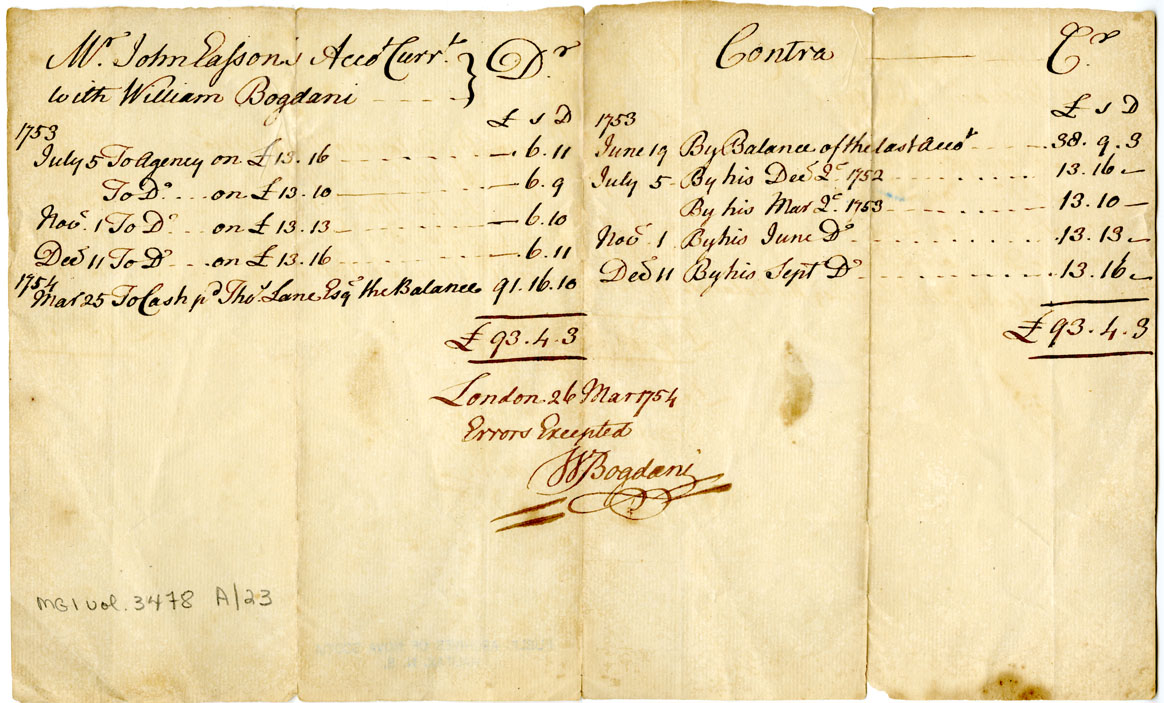 Mr. John Easson's Acco.t Curr.t } Dr
with William Bogdani
£ s D
1753
July 5 To Agency on £13.16 — .6.11
To Do. on £13.10 — .6.9
Nov.r 1 To Do. on £13.13 — .6.10
Dec.r 11 To Do. on £13.16 — .6.11
1754
Mar 25 To Cash p.d Tho.s Lane Esq.r the Balance 91.16.10
£ 93.4.3
Contra Cr.
£ s D
1753
June 19 By Balance of the last Acco.t 38.9.3
July 5 By his Dec.r Q.r 1752 13.16 —
By his Mar Q.r 1753 13.10 —
Nov.r 1 By his June Do. 13.13 —
Dec.r 11 By his Sept Do. 13.16 —
£ 93.4.3
London 26 Mar 1754
Errors Excepted
W Bogdani
MG1 vol. 3478 A/23